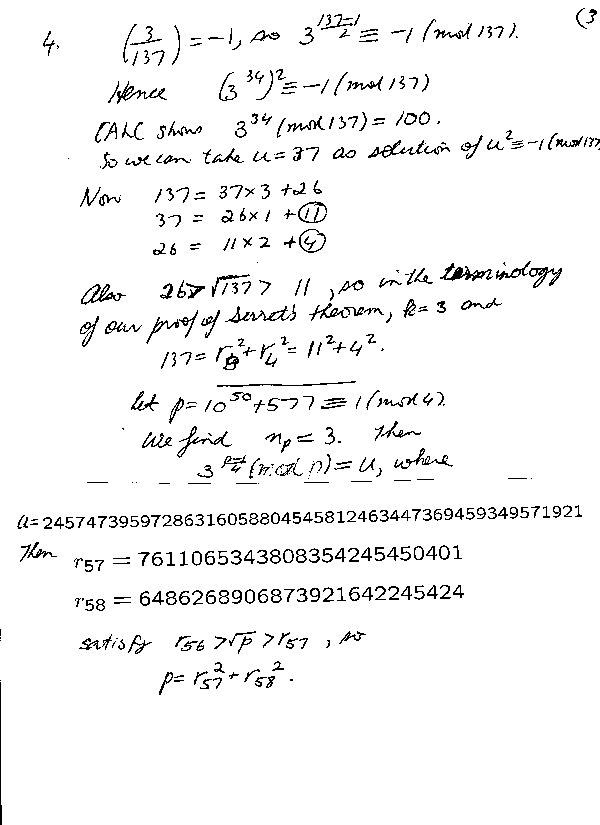 (3
4. (3/137) = -1, so 3^((137-1)/2) ≡ -1 (mod 137).
Hence (3^34)^2 ≡ -1 (mod 137)
CALC shows 3^34 (mod 137) = 100.
So we can take u = 37 as solution of u^2 ≡ -1 (mod 137)
Now 137 = 37 × 3 + 26
37 = 26 × 1 + 11
26 = 11 × 2 + 4
Also 26 > √137 > 11, so in the terminology
of our proof of Serret's theorem, k = 3 and
137 = r_3^2 + r_4^2 = 11^2 + 4^2.
Let p = 10^50 + 577 ≡ 1 (mod 4).
We find n_p = 3. Then
3^((p-1)/4) (mod p) = u, where
u = 24574739597286316058804545812463447369459349571921
Then r_57 = 7611065343808354245450401
r_58 = 6486268906873921642245424
satisfy r_56 > √p > r_57, so
p = r_57^2 + r_58^2.